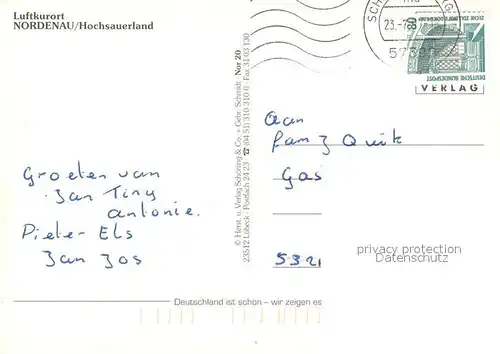 Luftkurort
NORDENAU/Hochsauerland
Groeten van
Jan Tiny
antonie.
Pieter Els
Jan Jos
© Herst. u. Verlag Schöning & Co. + Gebr. Schmidt · Nor 20
23512 Lübeck · Postfach 24 23 ☎ (04 51) 310 310 · Fax 31 03 130
23.-7.
DEUTSCHE BUNDESPOST
80
VERLAG
aan
fam J Quik
Gas
5321
privacy protection
Datenschutz
Deutschland ist schön – wir zeigen es